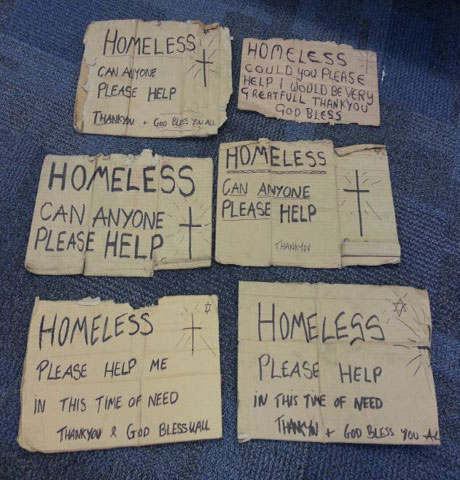 HOMELESS
CAN ANYONE
PLEASE HELP
THANKYOU + GOD BLESS YOU ALL
HOMELESS
COULD YOU PLEASE
HELP I WOULD BE VERY
GREATFULL THANKYOU
GOD BLESS
HOMELESS
CAN ANYONE
PLEASE HELP
HOMELESS
CAN ANYONE
PLEASE HELP
THANKYOU
HOMELESS
PLEASE HELP ME
IN THIS TIME OF NEED
THANKYOU & GOD BLESS U ALL
HOMELESS
PLEASE HELP
IN THIS TIME OF NEED
THANKYOU + GOD BLESS YOU AL